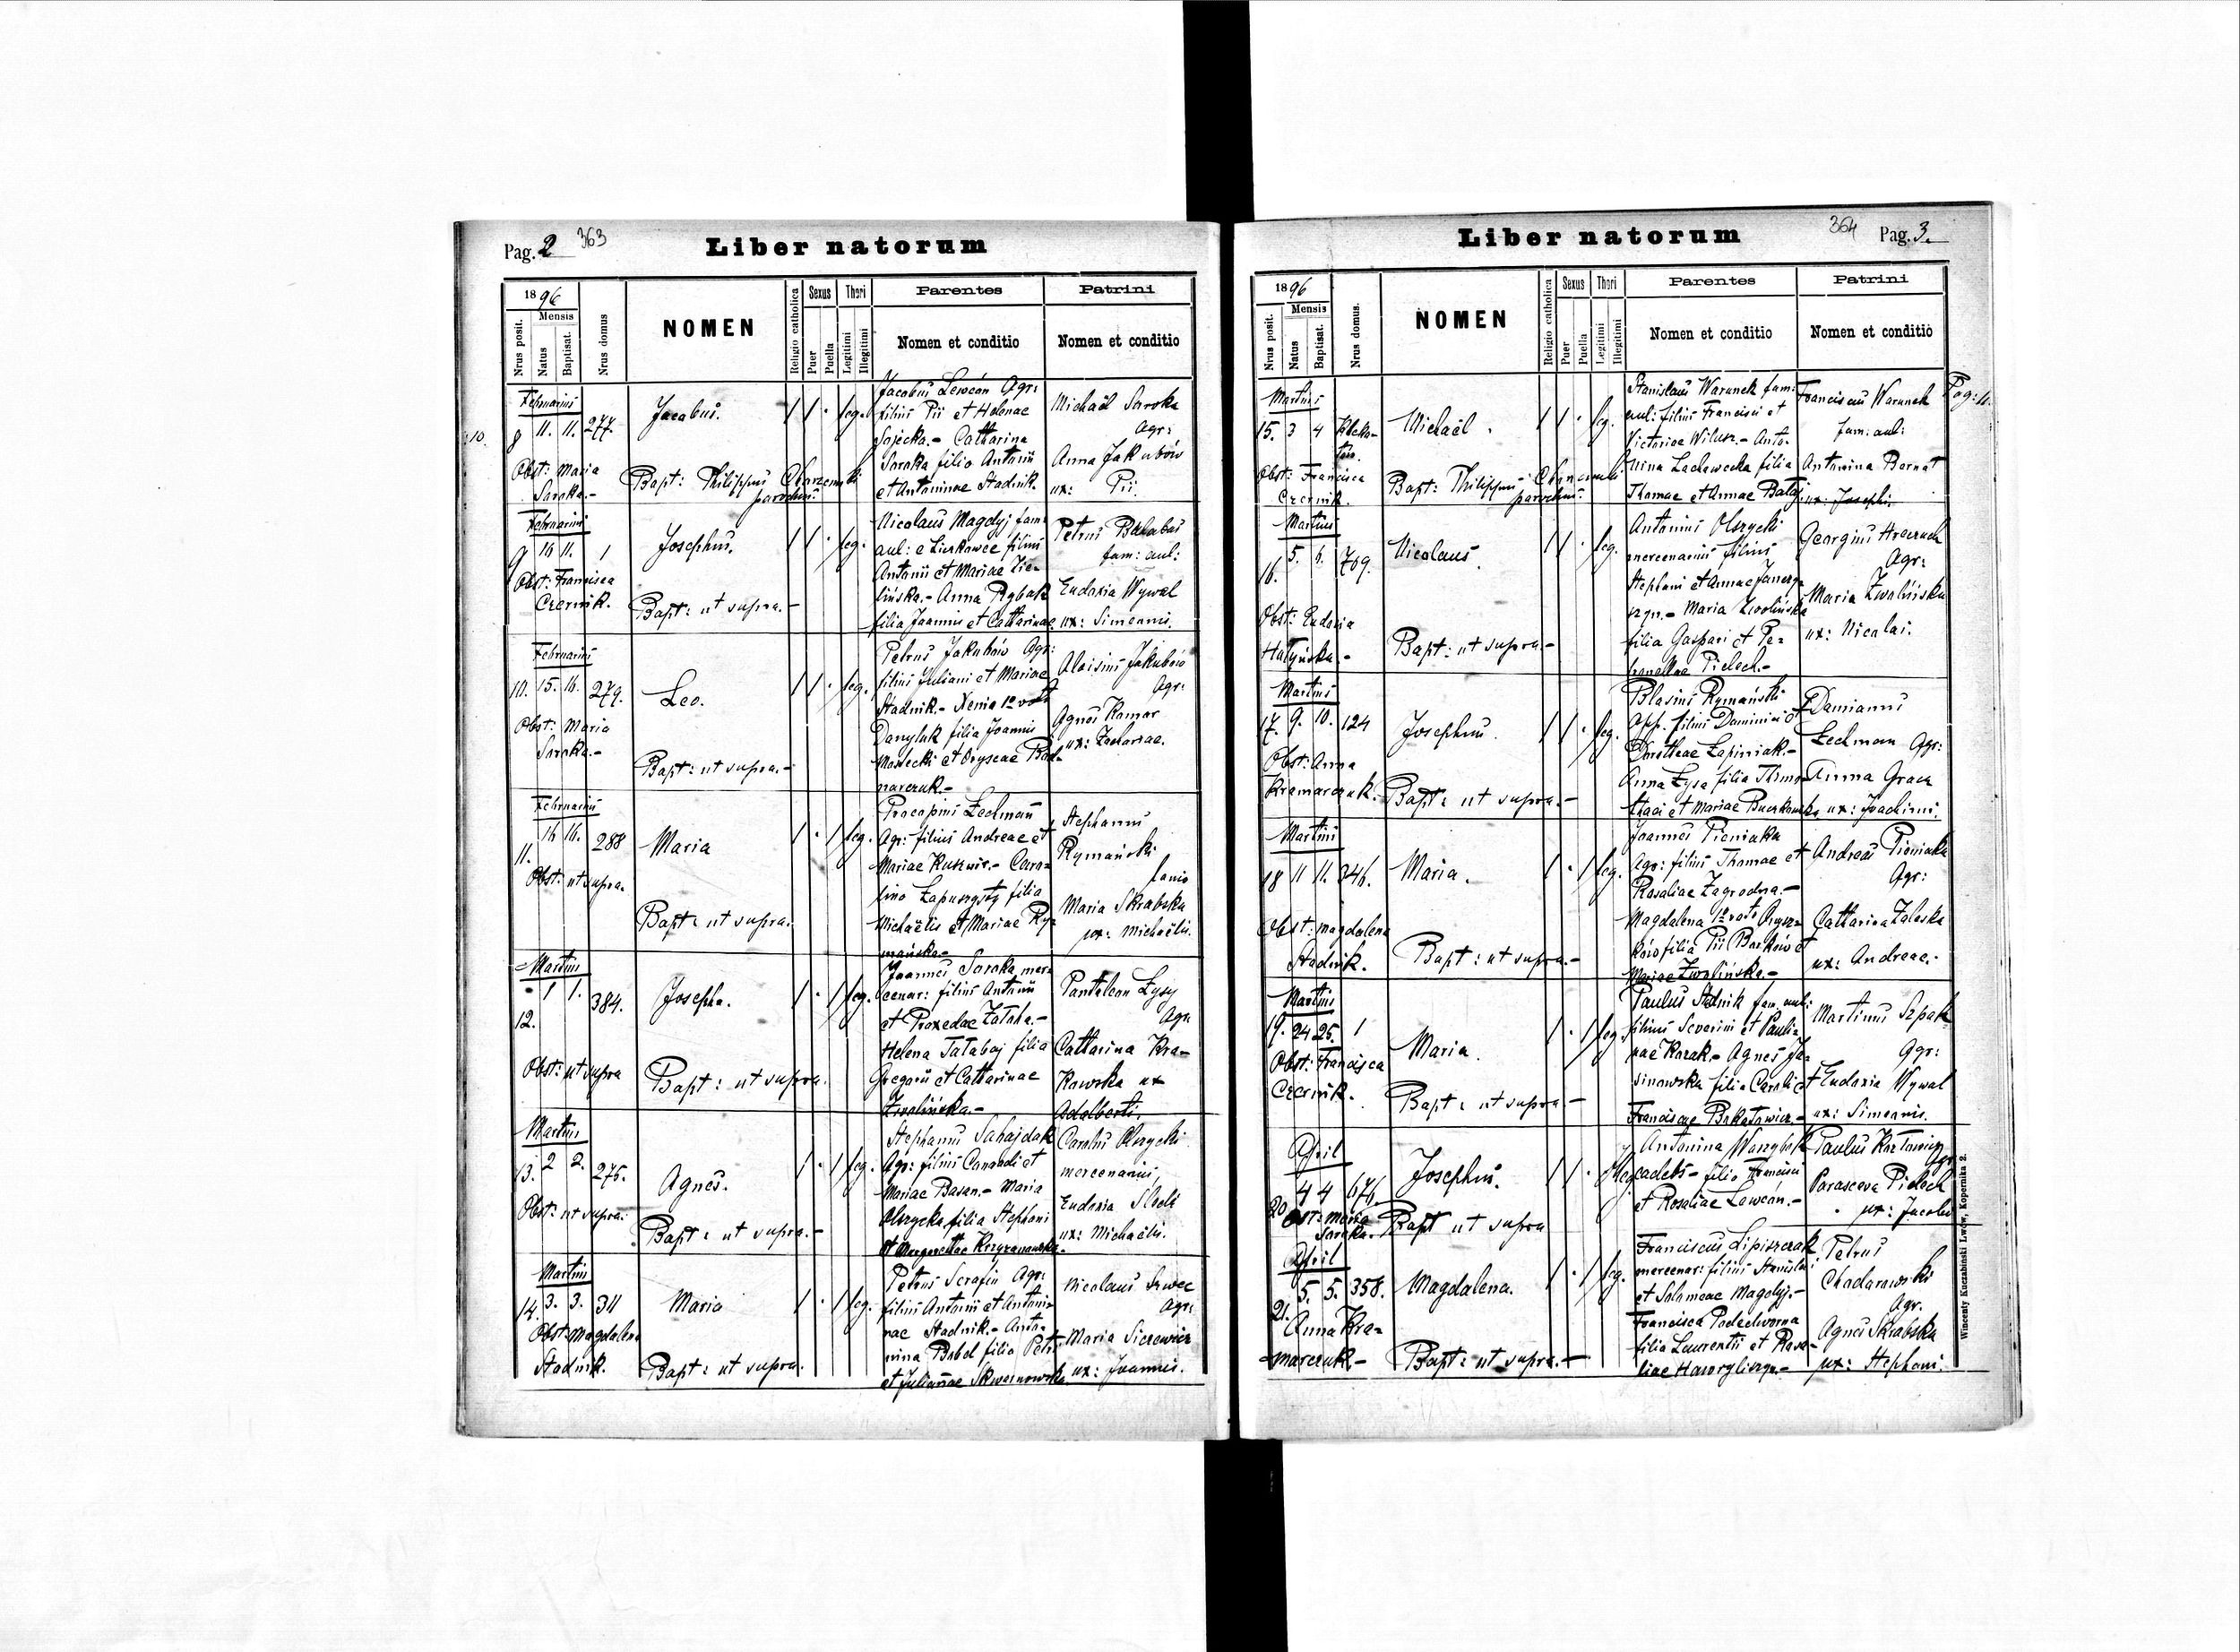 Pag. 2 363
Liber natorum
1896
Mensis
Nrus posit.
Natus
Baptisat.
Nrus domus
NOMEN
Religio catholica
Sexus
Puer
Puella
Thori
Legitimi
Illegitimi
Parentes
Nomen et conditio
Patrini
Nomen et conditio
Februarius
8 11. 11. 277.
Obst: Maria
Soroka.-
Jacobus.
Bapt: Philippus
parochus.
leg.
Jacobus Lewcón Agr:
filius Pii et Helenae
Sajecka.- Catharina
Soroka filia Antonii
et Antoninae Stadnik.
Michaël Soroka
Agr:
Anna Jakubów
ux: Pii.
Februarius
9 16 11. 1
Obst: Francisca
Czernik.
Josephus.
Bapt: ut supra.-
leg.
Nicolaus Magdyj fam:
aul: e filius
Antonii et Mariae Zie-
lińska.- Anna Rybak
filia Joannis et Catharinae.
Petrus
fam: aul:
Eudoxia Wywal
ux: Simeonis.
Februarius
10. 15. 16. 279.
Obst: Maria
Soroka.-
Leo.
Bapt: ut supra.-
leg.
Petrus Jakubów Agr:
filius Juliani et Mariae
Stadnik.- Xenia 1º voto
Danyluk filia Joannis
et Oryseae Bod-
narczuk.-
Aloisius Jakubów
Agr:
Agnes Komar
ux: Zachariae.
Februarius
11. 16 16. 288
Obst: ut supra.
Maria
Bapt: ut supra.
leg.
Procopius Lechman
Agr: filius Andreae et
Mariae Kukwir.- Caro-
lina filia
Michaëlis et Mariae Ry-
mańska.-
Stephanus
Rymański
Maria Skrabska
ux: Michaëlis.
Martius
12. 1 1. 384.
Obst: ut supra
Josepha.
Bapt: ut supra.
leg.
Joannes Soroka mer-
cenar: filius Antonii
et Praxedae Zataha.-
Helena Tataboj filia
Gregorii et Catharinae
Zwolińska.-
Pantaleon Łysy
Agr.
Catharina Kra-
kowska ux
Adalberti.
Martius
13. 2 2. 275.
Obst: ut supra.
Agnes.
Bapt: ut supra.-
leg.
Stephanus Sahajdak
Agr: filius Conradi et
Mariae Basan.- Maria
Olszycka filia Stephani
et Margarethae Krzyzanowska.
Carolus Olszycki
mercenarius,
Eudoxia
ux: Michaëlis.
Martius
14. 3. 3. 311
Obst: Magdalena
Stadnik.
Maria
Bapt: ut supra.
leg.
Petrus Serafin Agr:
filius Antonii et Antoni-
nae Stadnik.- Anto-
nina Babel filia Petri
et Julianae Skwarnowska.
Nicolaus Szwec
Agr:
Maria Sierowicz
ux: Joannis.
Liber natorum
364 Pag. 3.
1896
Mensis
Nrus posit.
Natus
Baptisat.
Nrus domus.
NOMEN
Religio catholica
Sexus
Puer
Puella
Thori
Legitimi
Illegitimi
Parentes
Nomen et conditio
Patrini
Nomen et conditio
Martius
15. 3 4
Obst: Francisca
Czernik.
Michaël.
Bapt: Philippus
parochus.
leg.
Stanislaus Warunek fam:
aul: filius Francisci et
Victoriae Wilusz.- Anto-
nina Zacławecka filia
Thomae et Annae Bałaj
Franciscus Warunek
fam: aul:
Antonina Bernat
ux: Josephi.
Martius
16. 5. 6. 709.
Obst: Eudoxia
Hałyńska.-
Nicolaus.
Bapt: ut supra.-
leg.
Antonius Olszycki
mercenarius filius
Stephani et Annae
Maria Zwolińska
filia Gaspari et Pe-
tronellae Pielech.-
Georgius
Agr:
Maria Zwolińska
ux: Nicolai.
Martius
17. 9. 10. 124
Obst: Anna
Kramarczuk.
Josephus.
Bapt: ut supra.-
leg.
Blasius Rymański
opp. filius Dominici et
Dorotheae Łapiniak.-
Anna Łysa filia
et Mariae
Damianus
Lechman Agr:
Anna Graca
ux: Joachimi.
Martius
18 11 11. 346.
Obst: Magdalena
Stadnik.
Maria.
Bapt: ut supra.-
leg.
Joannes Pioniaka
Agr: filius Thomae et
Rosaliae Zagrodna.-
Magdalena 1º voto
filia Pii et
Mariae Zwolińska.-
Andreas Pioniaka
Agr:
Catharina Zaleska
ux: Andreae.
Martius
19. 24 25. 1
Obst: Francisca
Czernik.
Maria.
Bapt: ut supra.-
leg.
Paulus Stadnik fam. aul:
filius Severini et Pauli-
nae Kozak.- Agnes Ja-
sinowska filia Caroli et
Franciscae
Martinus Szpak
Agr:
Eudoxia Wywal
ux: Simeonis.
April
20 4 4 676.
Obst: Maria
Soroka.
Josephus.
Bapt ut supra
Illeg.
Antonina
filia Francisci
et Rosaliae Lewcón.-
Paulus Kozłowicz
Agr.
Parasceva Pielech
ux: Jacobi
April
21. 5. 5. 358.
Anna Kra-
marczuk.-
Magdalena.
Bapt: ut supra.-
leg.
Franciscus Lipiszczak
mercenar: filius Stanislai
et Salomeae Magdyj.-
Francisca Podedworna
filia Laurentii et Rosa-
liae Hawryliszyn.-
Petrus
Chodorowski
Agr.
Agnes Skrabska
ux: Stephani.
Wincenty Kuczabiński Lwów, Kopernika 2.